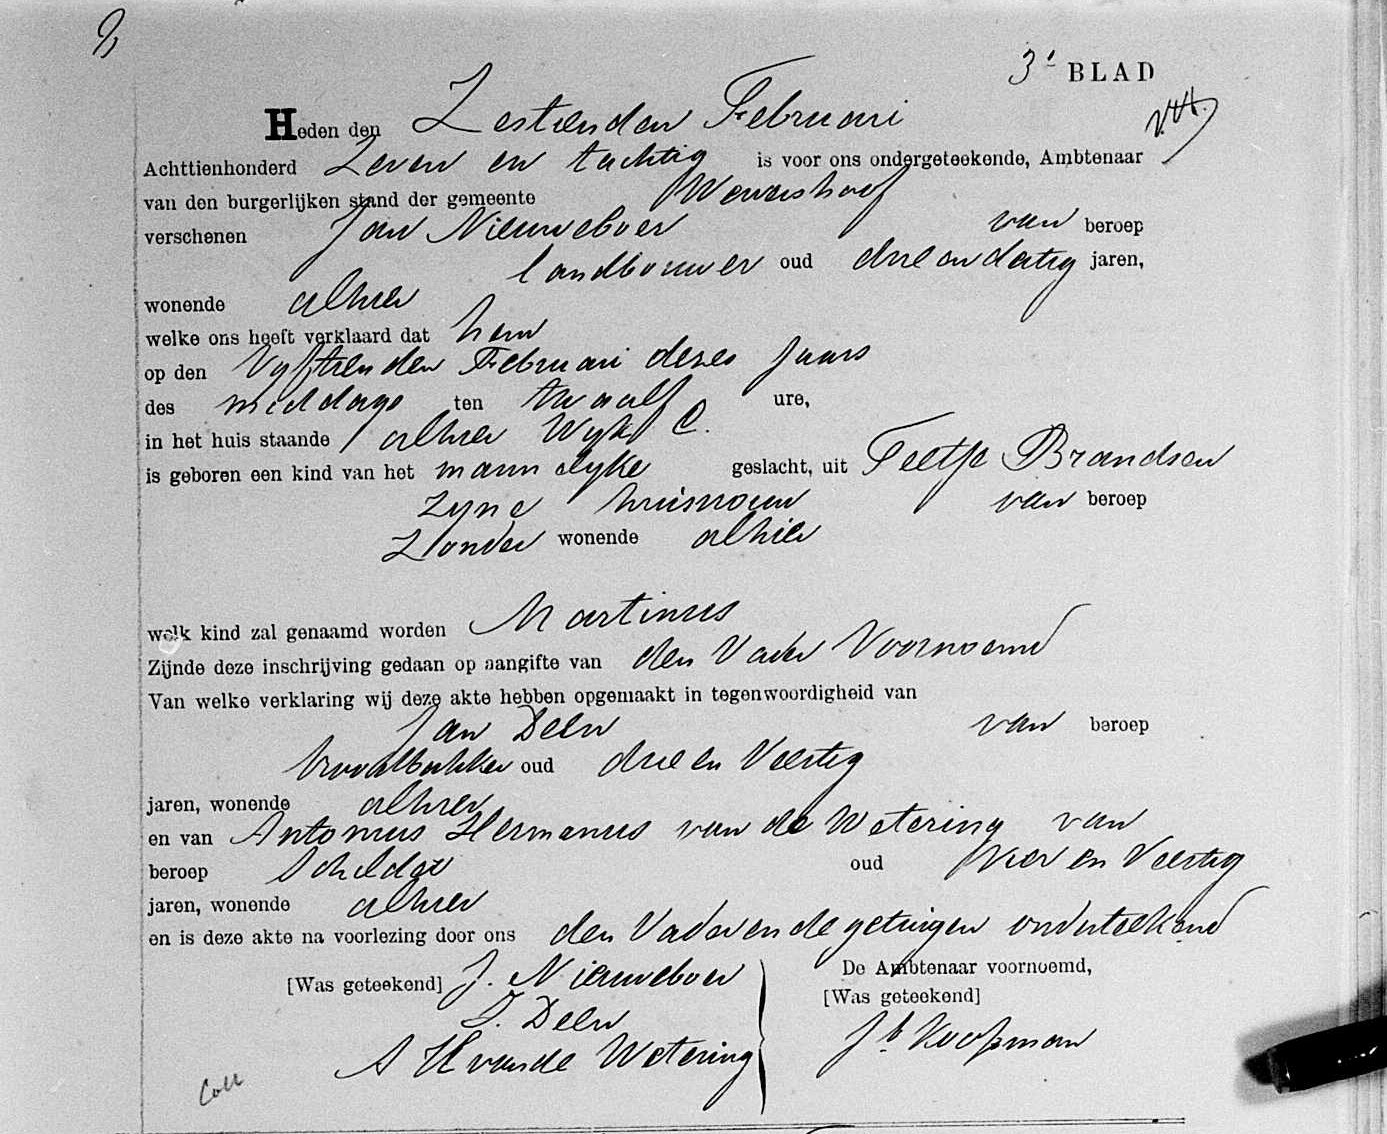 3e BLAD
Heden den Zestienden Februari
Achttienhonderd Zeven en tachtig is voor ons ondergeteekende, Ambtenaar
van den burgerlijken stand der gemeente Wervershoof
verschenen Jan Nieuweboer van beroep
landbouwer oud drie en dertig jaren,
wonende alhier
welke ons heeft verklaard dat hem
op den Vyftienden Februari dezes jaars
des middags ten twaalf ure,
in het huis staande alhier Wyk C.
is geboren een kind van het mannelyke geslacht, uit Teetje Brandsen
zyne huisvrouw van beroep
Zonder wonende alhier
welk kind zal genaamd worden Martinus
Zijnde deze inschrijving gedaan op aangifte van den Vader Voornoemd
Van welke verklaring wij deze akte hebben opgemaakt in tegenwoordigheid van
Jan Deen van beroep
broodbakker oud drie en Veertig
jaren, wonende alhier
en van Antonius Hermanus van de Wetering van
beroep Schilder oud Vier en Veertig
jaren, wonende alhier
en is deze akte na voorlezing door ons den Vader en de getuigen onderteekend
[Was geteekend] J. Nieuweboer
J. Deen
A H van de Wetering
De Ambtenaar voornoemd,
[Was geteekend]
Jb Koopman
Coll